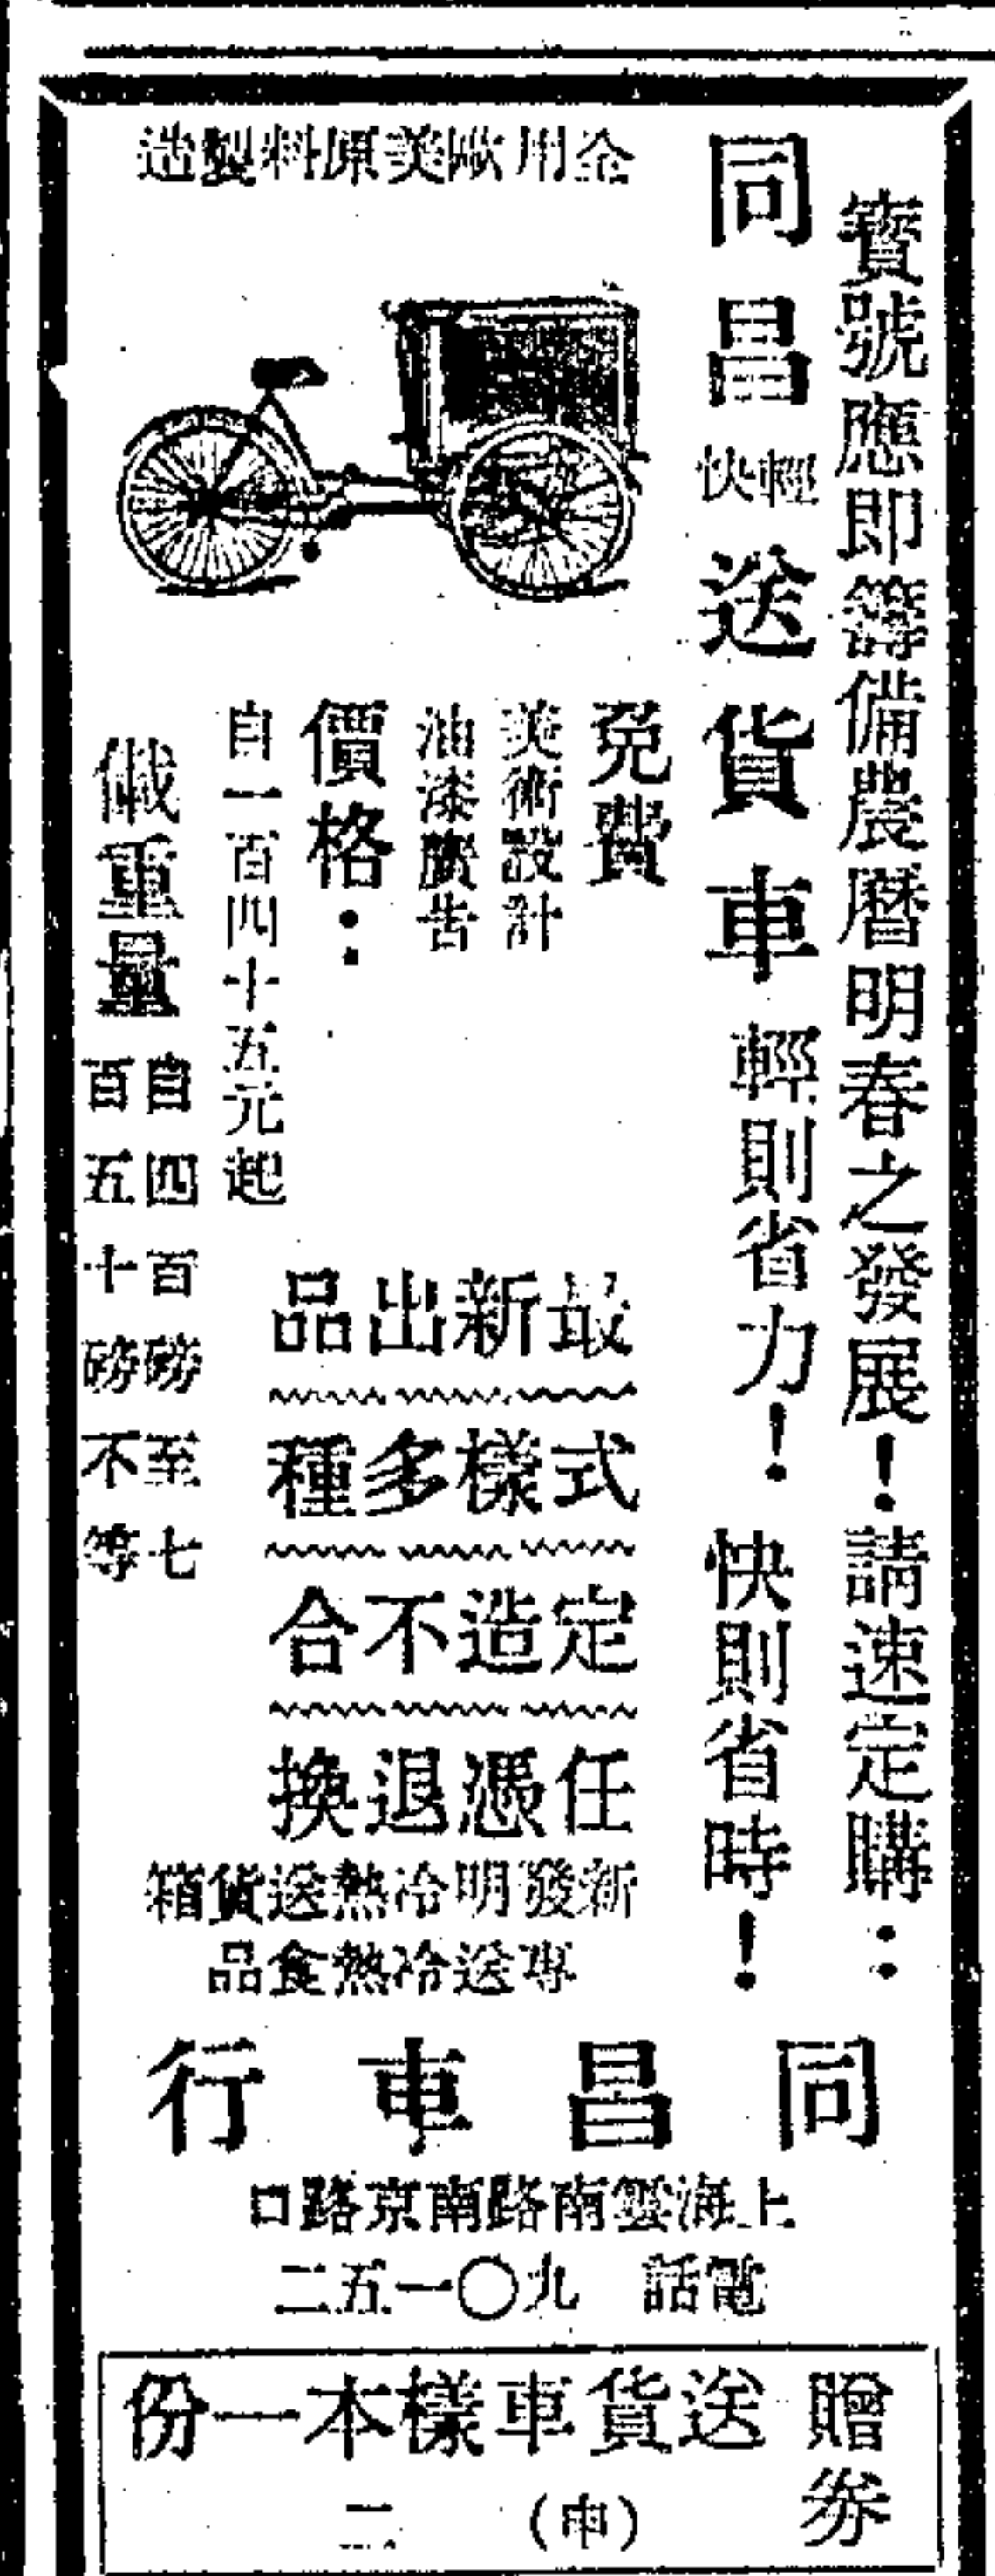 寶號應即籌備農曆明春之發展！請速定購：
同昌輕快送貨車
輕則省力！
快則省時！
全用歐美原料製造
免費
美術設計
油漆廣告
價格：
自一百四十五元起
儎重量
自四百磅至七
百五十磅不等
最新出品
式樣多種
定造不合
任憑退換
新發明冷熱送貨箱
專送冷熱食品
同昌車行
上海雲南路南京路口
電話 九〇一五二
贈券
送貨車樣本一份
（申） 二